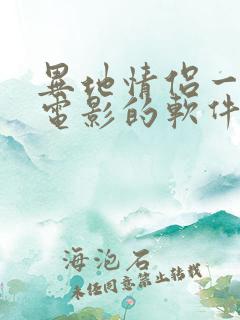 異地情侶一
電影的軟件
海泡石
未经同意禁止转载